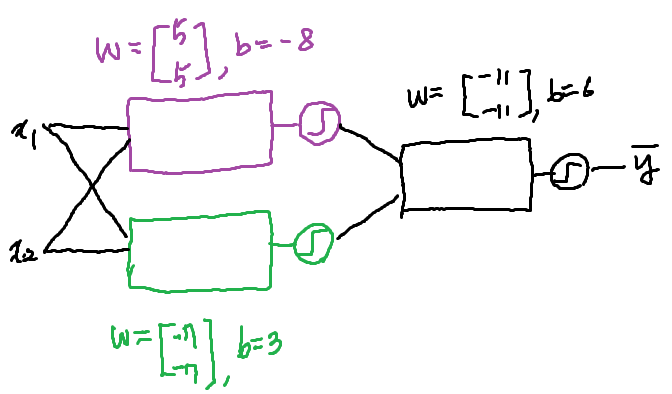 W = [5 5], b = -8
W = [-11 -11], b = 6
x1
x2
ȳ
W = [-7 -7], b = 3